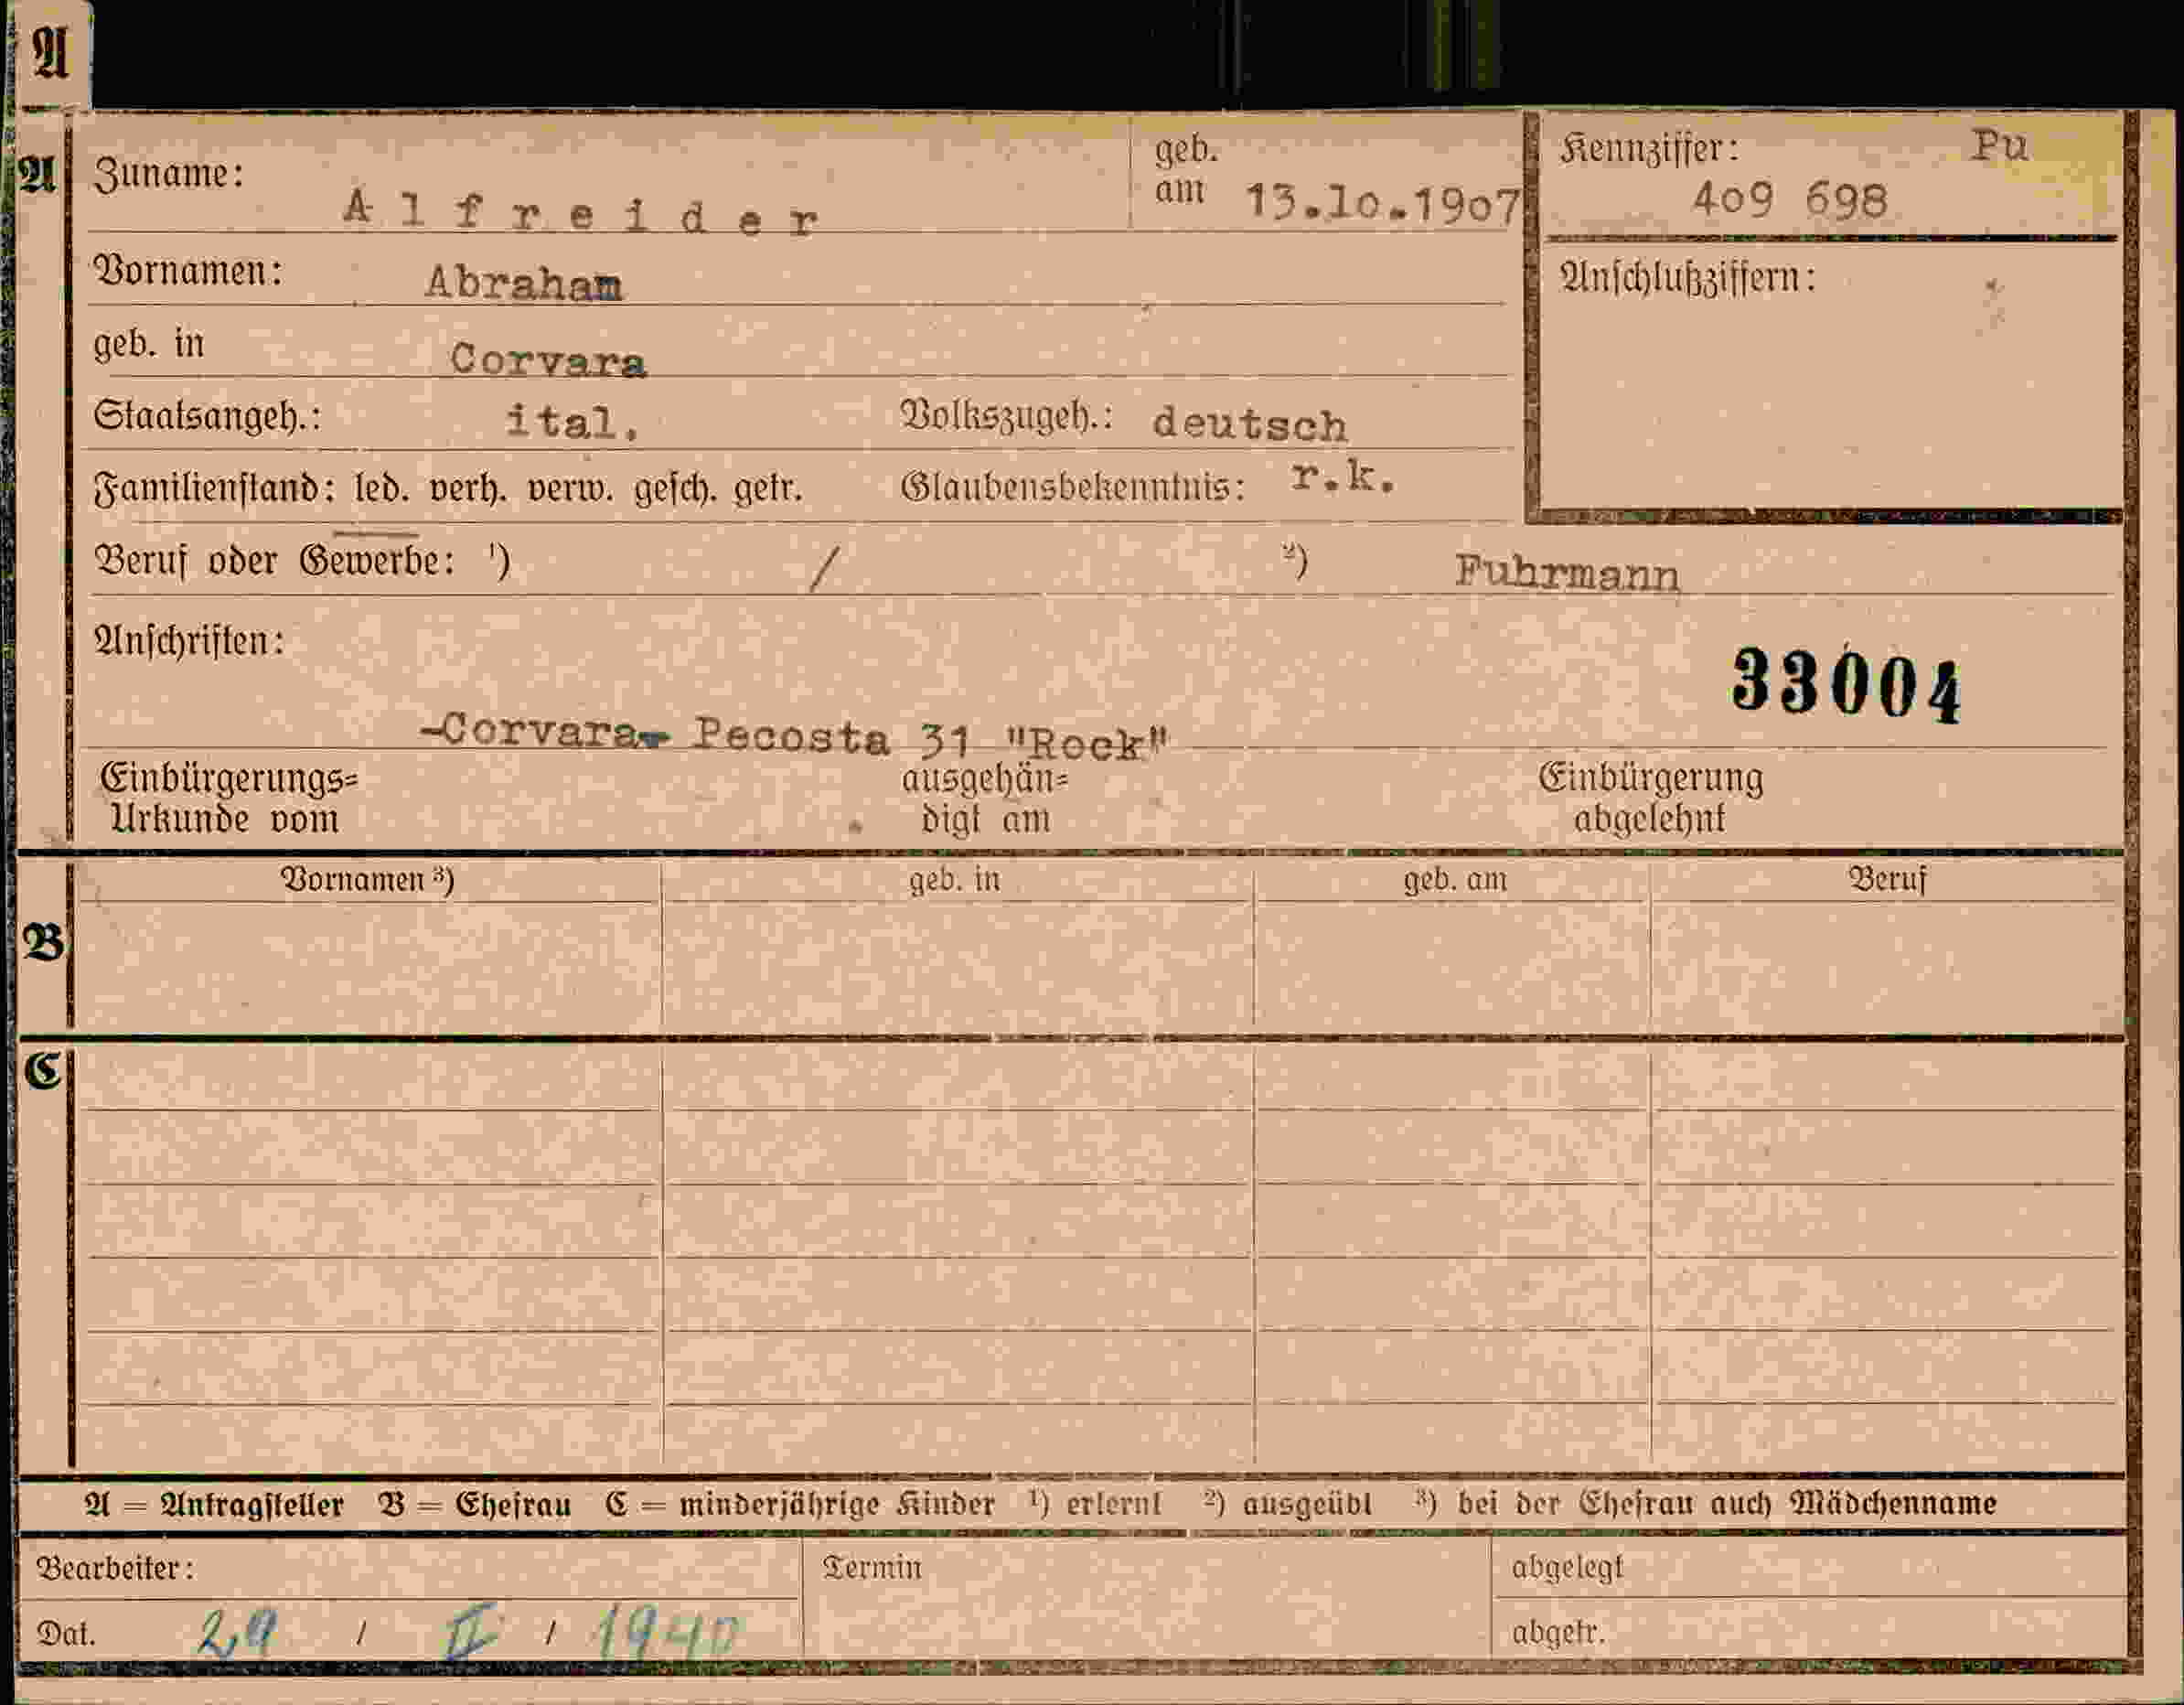 A
A
Zuname: Alfreider geb. am 13.10.1907 Kennziffer: Pu
409 698
Vornamen: Abraham Anschlußziffern:
geb. in Corvara
Staatsangeh.: ital. Volkszugeh.: deutsch
Familienstand: led. verh. verw. gesch. getr. Glaubensbekenntnis: r.k.
Beruf oder Gewerbe: 1) / 2) Fuhrmann
Anschriften:
33004
-Corvara- Pecosta 31 "Rock"
Einbürgerungs= ausgehän= Einbürgerung
Urkunde vom digt am abgelehnt
Vornamen 3) geb. in geb. am Beruf
B
C
A = Antragsteller B = Ehefrau C = minderjährige Kinder 1) erlernt 2) ausgeübt 3) bei der Ehefrau auch Mädchenname
Bearbeiter: Termin abgelegt
Dat. 29 / II / 1940 abgetr.